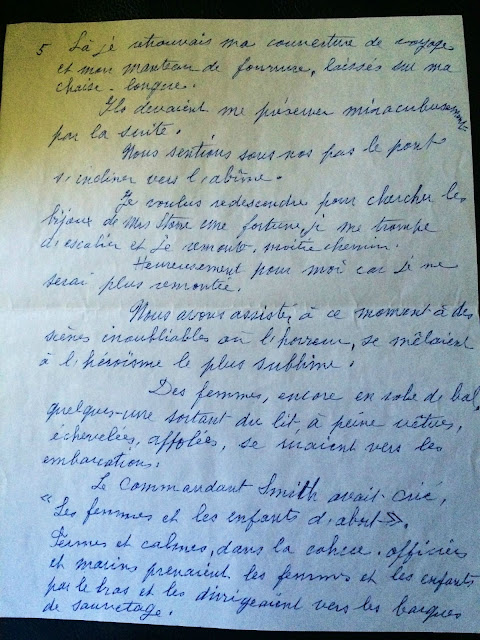 5 Là je retrouvais ma couverture de voyage
et mon manteau de fourrure, laissés sur ma
chaise-longue.
Ils devaient me préserver miraculeusement
par la suite.
Nous sentions sous nos pas le pont
s'incliner vers l'abîme.
Je voulus redescendre pour chercher les
bijoux de Mrs Stone une fortune, je me trompe
d'escalier et je remonte, moitié chemin.
Heureusement pour moi car je ne
serai plus remontée.
Nous avons assister à ce moment à des
scènes inoubliables où l'horreur, se mêlaient
à l'héroïsme le plus sublime.
Des femmes, encore en robe de bal,
quelques-une sortant du lit, à peine vêtues,
échevelées, affolées, se ruaient vers les
embarcations.
Le Commandant Smith avait crié,
"Les femmes et les enfants d'abort".
Fermes et calmes, dans la cohue, officiers
et marins prenaient les femmes et les enfants
par le bras et les dirigeaient vers les barques
de sauvetage.